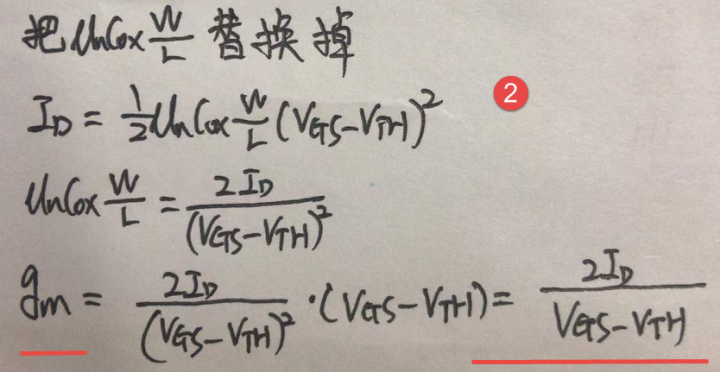 把 μnCox W/L 替换掉
ID = 1/2 μnCox W/L (VGS-VTH)²
②
μnCox W/L = 2ID/(VGS-VTH)²
gm = 2ID/(VGS-VTH)² · (VGS-VTH) = 2ID/(VGS-VTH)